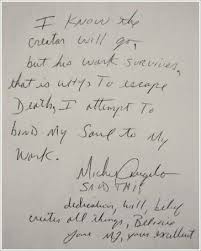 I KNOW the
creator will go,
but his work survives,
that is why To escape
Death, I attempt To
bind My Soul to My
Work.
Michelangelo
SAID THIS
dedication, will, belief
creates all things, Believe
yours MJ, yours